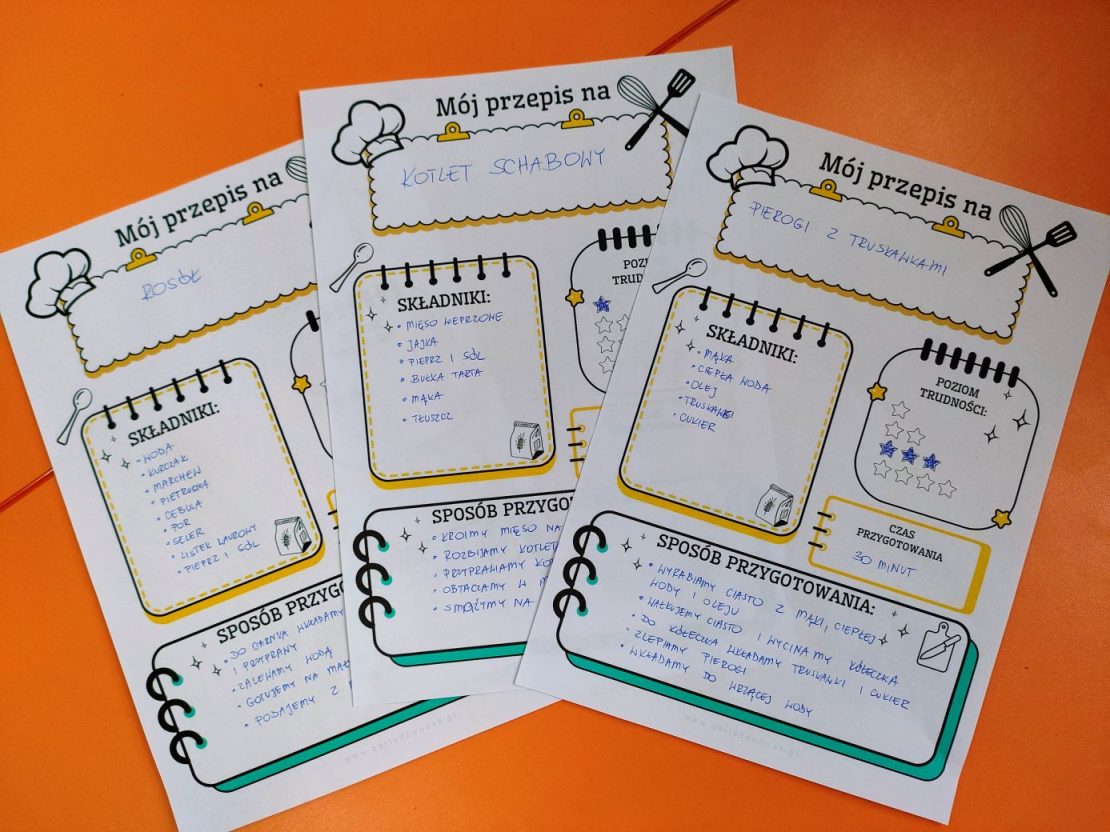 Mój przepis na
ROSÓŁ
SKŁADNIKI:
• WODA
• KURCZAK
• MARCHEW
• PIETRUSZKA
• CEBULA
• POR
• SELER
• LISTEK LAUROWY
• PIEPRZ I SÓL
SPOSÓB PRZYGO
• DO GARNKA WKŁADAMY
I PRZYPRAWY
• ZALEWAMY WODĄ
• GOTUJEMY NA MAŁ
• PODAJEMY Z
Mój przepis na
KOTLET SCHABOWY
SKŁADNIKI:
• MIĘSO WIEPRZOWE
• JAJKA
• PIEPRZ I SÓL
• BUŁKA TARTA
• MĄKA
• TŁUSZCZ
POZI
TRUD
SPOSÓB PRZYGOT
• KROIMY MIĘSO NA
• ROZBIJAMY KOTLET
• PRZYPRAWIAMY KO
• OBTACZAMY W M
• SMAŻYMY NA
Mój przepis na
PIEROGI Z TRUSKAWKAMI
SKŁADNIKI:
• MĄKA
• CIEPŁA WODA
• OLEJ
• TRUSKAWKI
• CUKIER
POZIOM
TRUDNOŚCI:
CZAS
PRZYGOTOWANIA
30 MINUT
SPOSÓB PRZYGOTOWANIA:
• WYRABIAMY CIASTO Z MĄKI, CIEPŁEJ
WODY I OLEJU
• WAŁKUJEMY CIASTO I WYCINAMY KÓŁECZKA
• DO KÓŁECZKA WKŁADAMY TRUSKAWKI I CUKIER
• ZLEPIAMY PIEROGI
• WKŁADAMY DO WRZĄCEJ WODY